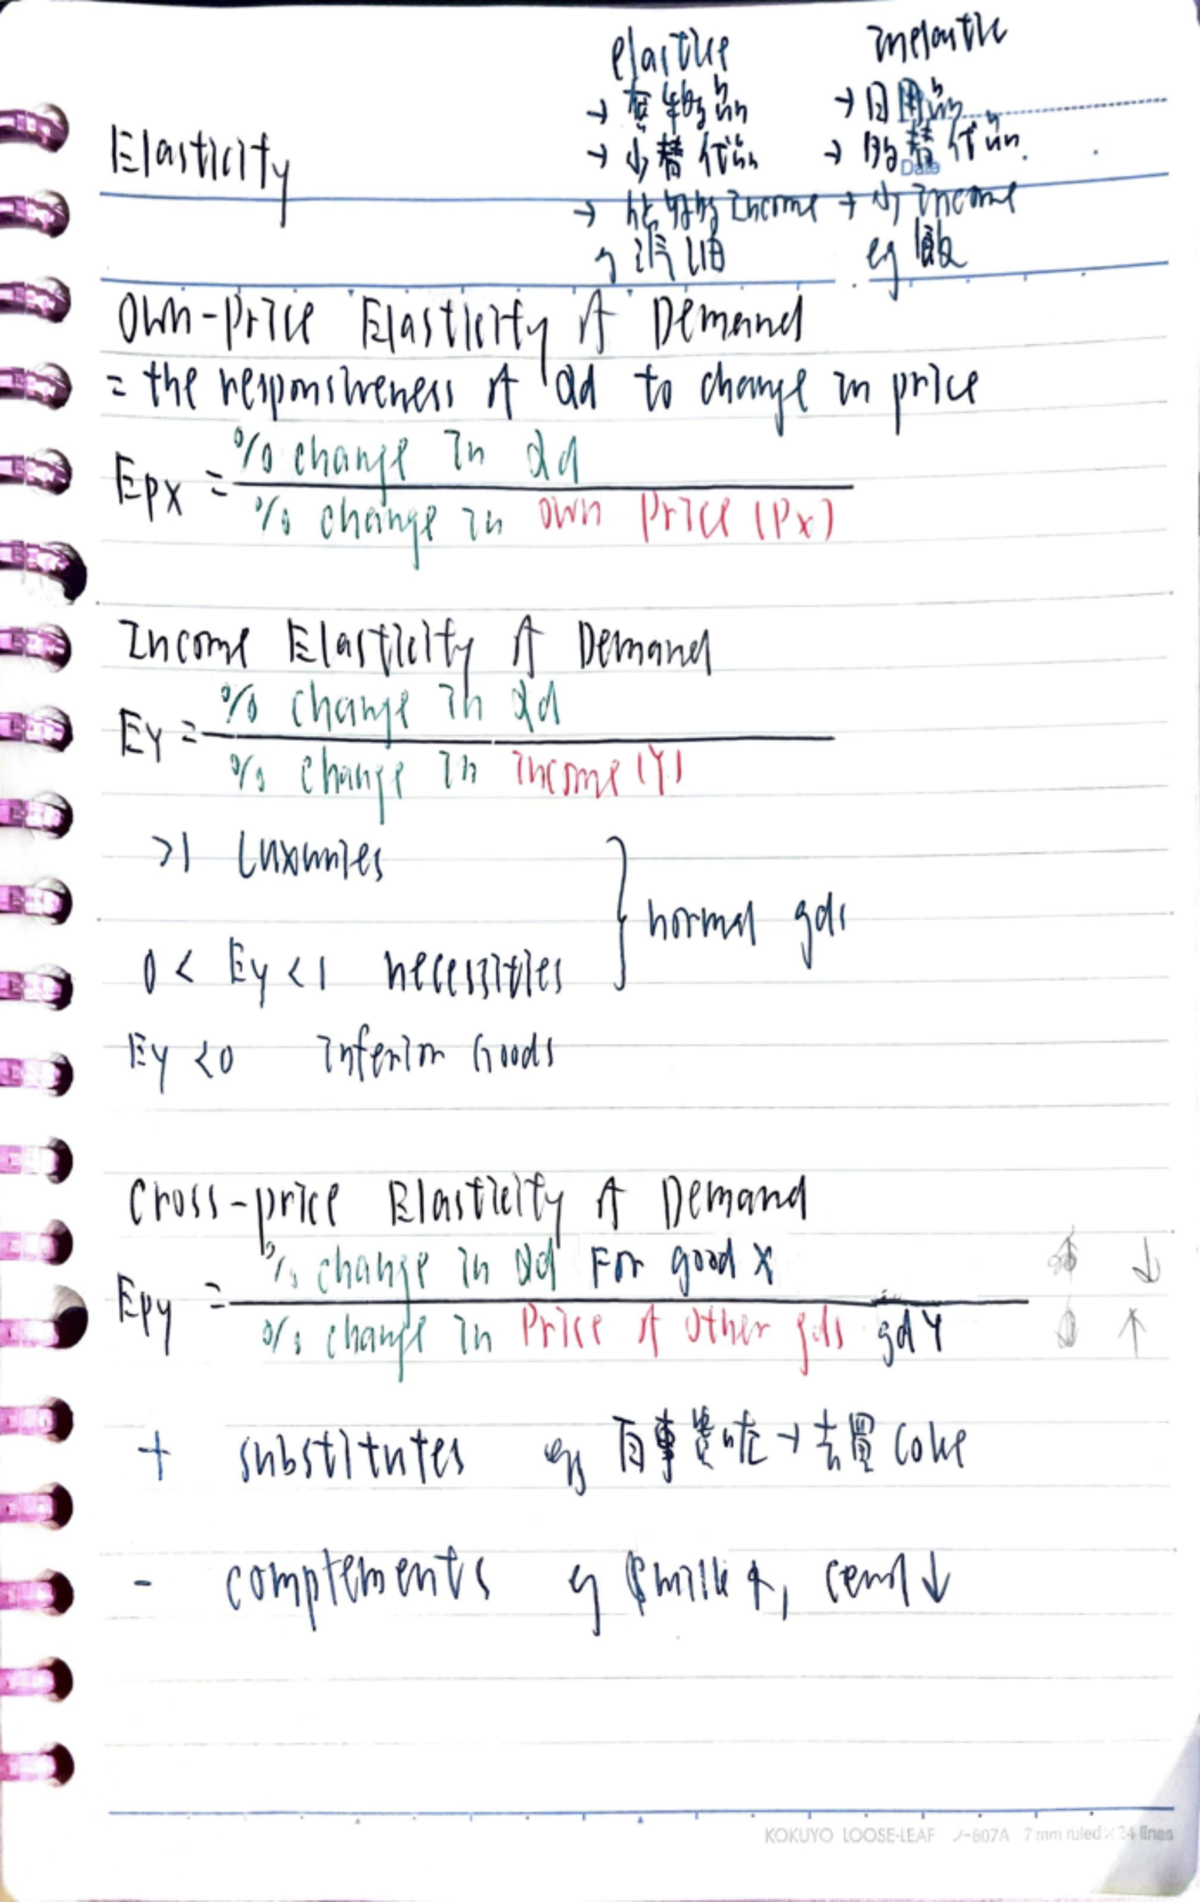 elastic inelastic
→ 奢侈品 → 日用品
→ 少替代品 → 多替代品
Date
Elasticity
→ 佔好多 income → 少 income
eg 汽油 eg 飯
Own-Price Elasticity of Demand
= the responsiveness of Qd to change in price
Epx = % change in Qd
% change in own Price (Px)
Income Elasticity of Demand
EY = % change in Qd
% change in income (Y)
>1 Luxuries
normal gds
0 < Ey < 1 necessities
Ey < 0 inferior Goods
Cross-price Elasticity of Demand
% change in Qd For good X ↓
Epy = % change in Price of other gds gd Y ↑
+ substitutes eg 百事貴咗 → 去買 Coke
- complements eg $milk ↑, cereal ↓
KOKUYO LOOSE-LEAF ノ-807A 7mm ruled×24 lines